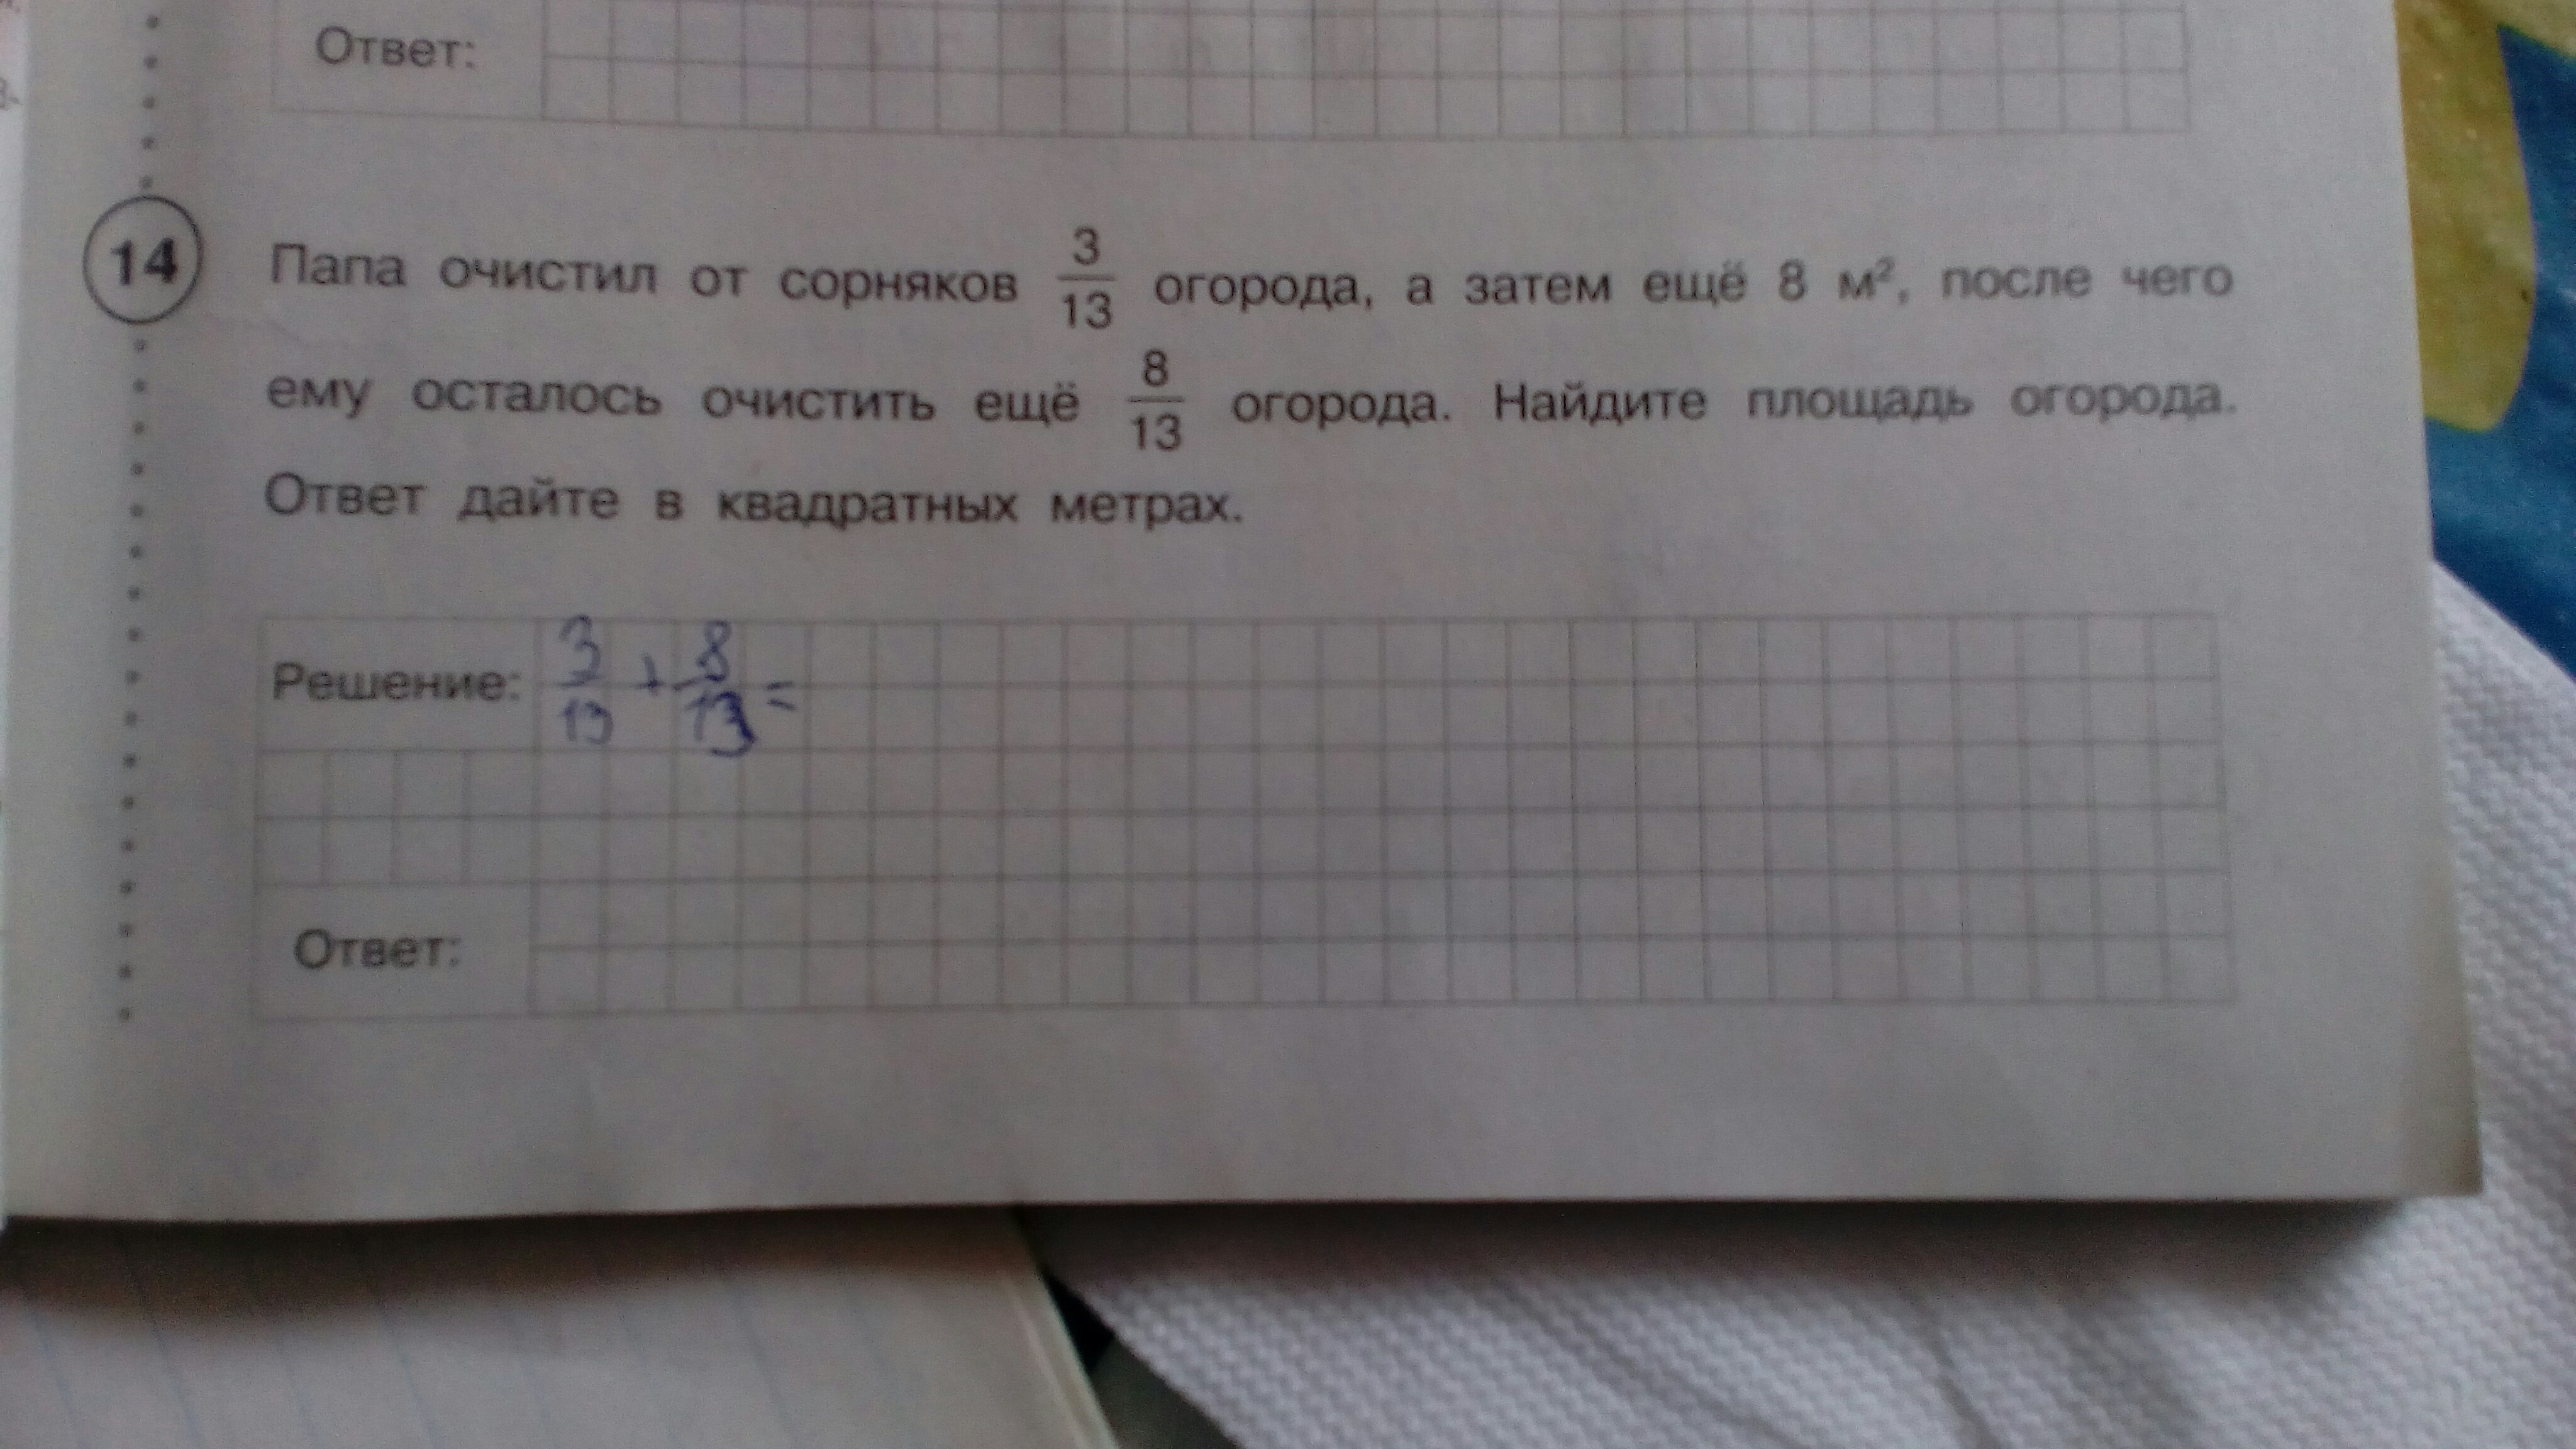 Ответ:
14
Папа очистил от сорняков 3/13 огорода, а затем ещё 8 м², после чего
ему осталось очистить ещё 8/13 огорода. Найдите площадь огорода.
Ответ дайте в квадратных метрах.
Решение: 3/13 + 8/13 =
Ответ: